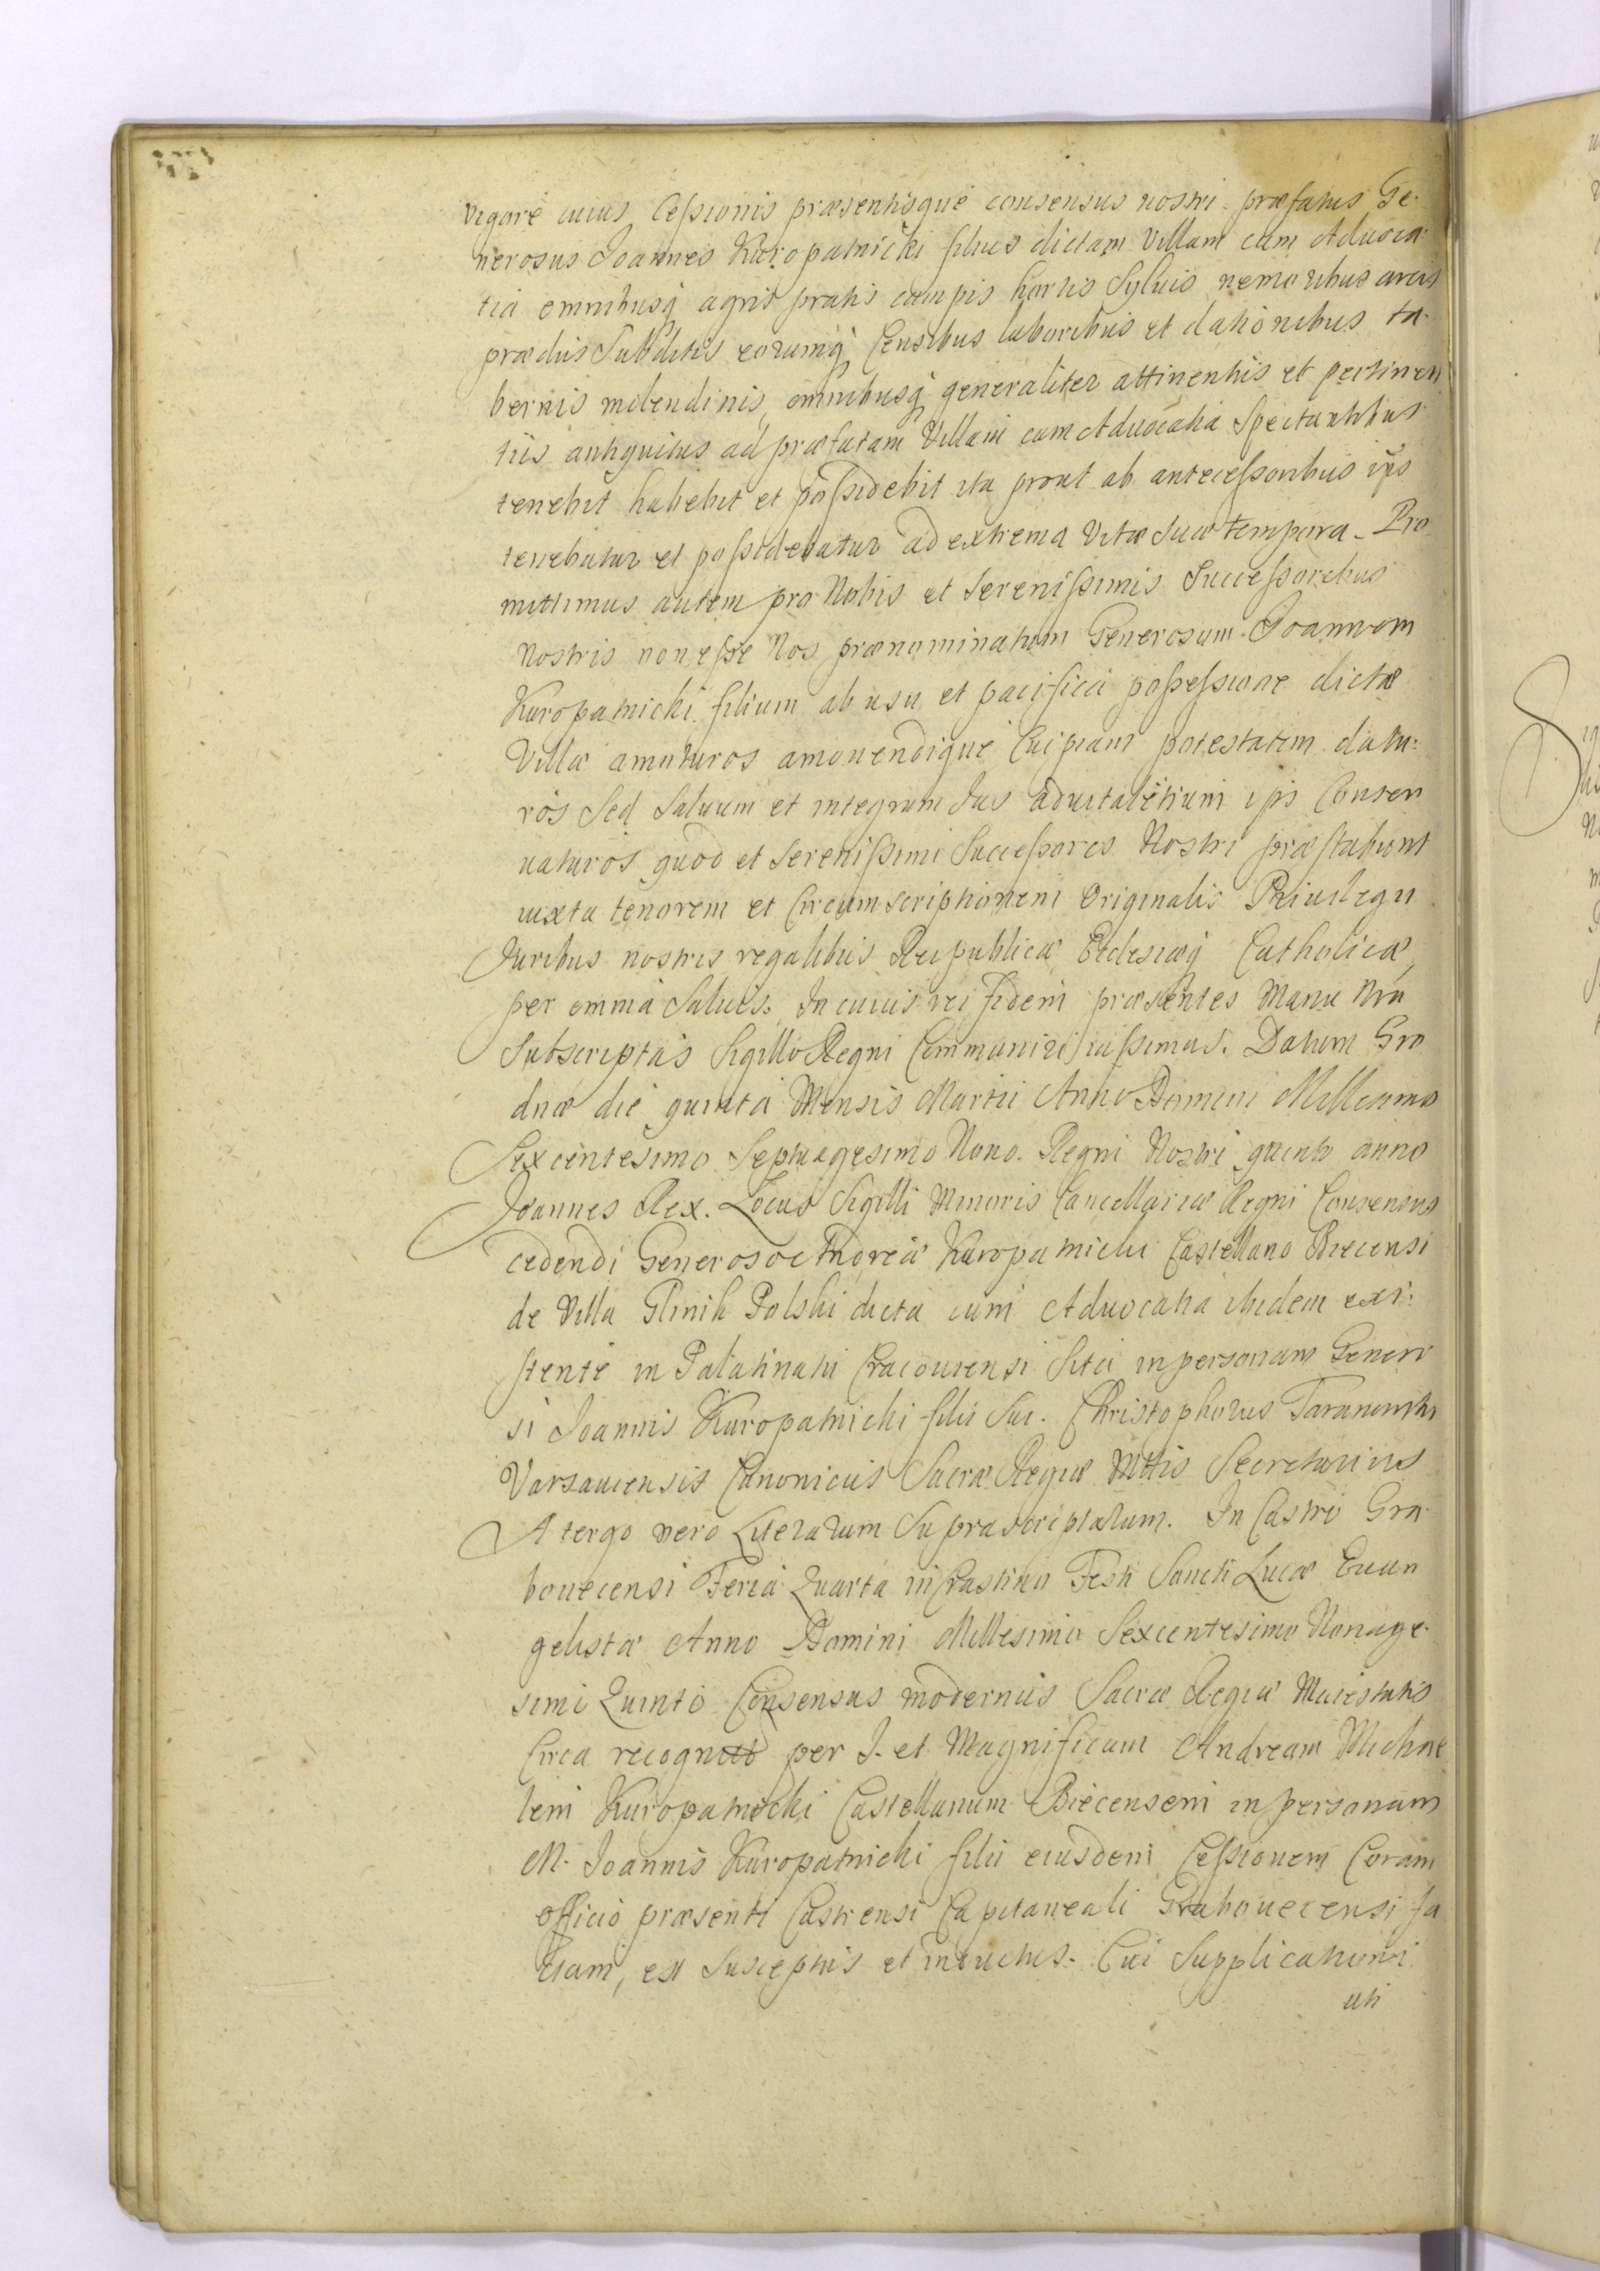 vigore cuius Cessionis præsentisque consensus nostri præfatus Ge-
nerosus Joannes Kuropatnicki filius dictam Villam cum Aduoca
tia omnibusq agris pratis campis hortis Syluis nemoribus areis
prædiis Subditis eorumq Censibus laboribus et dationibus ta-
bernis molendinis, omnibusq generaliter attinentiis et pertinen
tiis antiquitus ad præfatam Villam cum Aduocatia Spectantibus
tenebit habebit et possidebit ita prout ab antecessoribus ips
tenebatur et possidebatur ad extrema Vitæ suæ tempora. Pro
mittimus autem pro Nobis et Serenissimis Successoribus
Nostris non esse Nos prænominatum Generosum Joannem
Kuropatnicki filium ab usu et pacifica possessione dictæ
Villæ amoturos amouendique Cuipiam potestatem datu-
ros Sed Saluum et integrum Jus aduitalitium ipsi Conser
uaturos quod et Serenissimi Successores Nostri præstabunt
iuxta tenorem et Circumscriptionem Originalis Priuilegii
Juribus nostris regalibus Reipublicæ Ecclesiæq Catholicæ
per omnia Saluis. In cuius rei fidem præsentes Manu Nra
Subscriptas Sigillo Regni Communiri iussimus. Datum Gro
dnæ die quinta Mensis Martii Anno Domini Millesimo
Sexcentesimo Septuagesimo Nono. Regni Nostri quinto anno
Joannes Rex. Locus Sigilli Minoris Cancellariæ Regni Consensus
cedendi Generoso Andreæ Kuropatnicki Castellano Biecensi
de Villa Glinik Polski dicta cum Aduocatia ibidem exi-
stente in Palatinatu Cracouiensi Sita in personam Genero
si Joannis Kuropatnicki filii Sui. Christophorus Taranowski
Varsauiensis Canonicus Sacræ Regiæ Mttis Secretarius
A tergo vero Literarum Suprascriptarum. In Castro Gra-
bouecensi Feria Quarta in Crastino Festi Sancti Lucæ Euan
gelistæ Anno Domini Millesimo Sexcentesimo Nonage-
simi Quinto Consensus modernus Sacræ Regiæ Maiestatis
Circa recognit per J. et Magnificum Andream Michae
lem Kuropatnicki Castellanum Biecensem in personam
M. Joannis Kuropatnicki filii eiusdem Cessionem Coram
officio præsenti Castrensi Capitaneali Grabouecensi fa
ctam, est Susceptus et inductus. Cui Supplicationi
uti